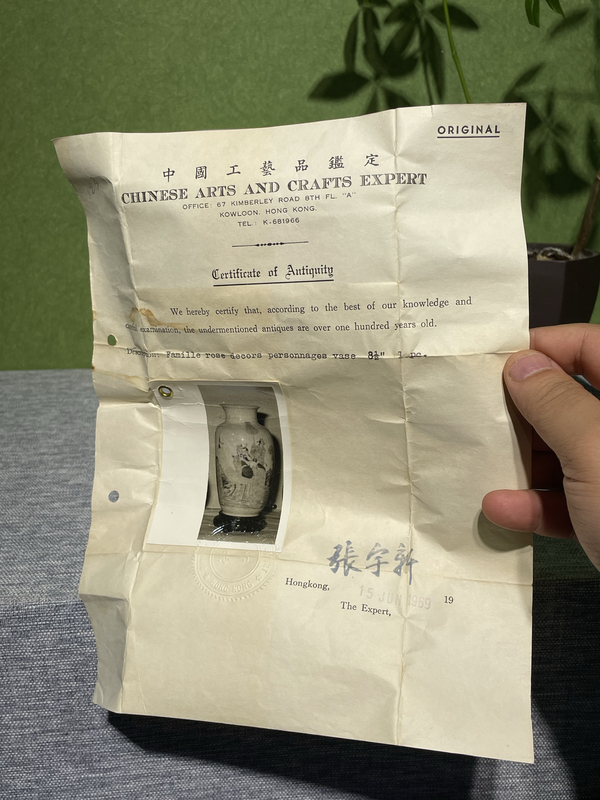 ORIGINAL
中國工藝品鑑定
CHINESE ARTS AND CRAFTS EXPERT
OFFICE: 67 KIMBERLEY ROAD 8TH FL. "A"
KOWLOON, HONG KONG.
TEL.: K-681966
Certificate of Antiquity
We hereby certify that, according to the best of our knowledge and
careful examination, the undermentioned antiques are over one hundred years old.
Famille rose decors personnages vase 8½" 1 pc.
張宇新
Hongkong, 15 JUN 1969 19
The Expert,